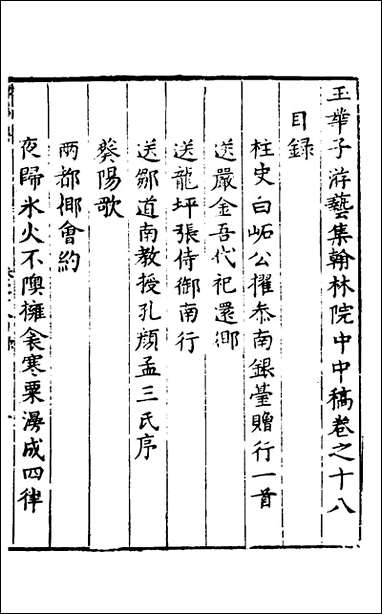 玉華子游藝集翰林院中中稿卷之十八
目錄
柱史白岷公擢叅南銀臺贈行一首
送嚴金吾代祀還鄉
送龍坪張侍御南行
送鄒道南教授孔顏孟三氏序
葵陽歌
兩都鄉會約
夜歸氷火不燠擁衾寒栗漫成四律